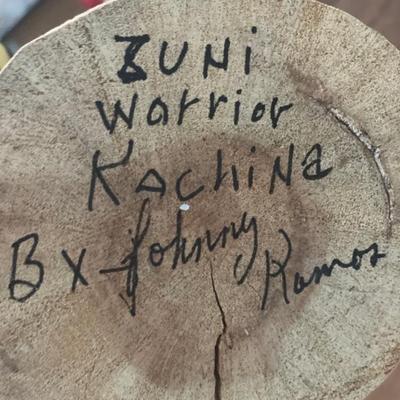 ZUNi
Warrior
KachiNa
BX-Johnny Ramos